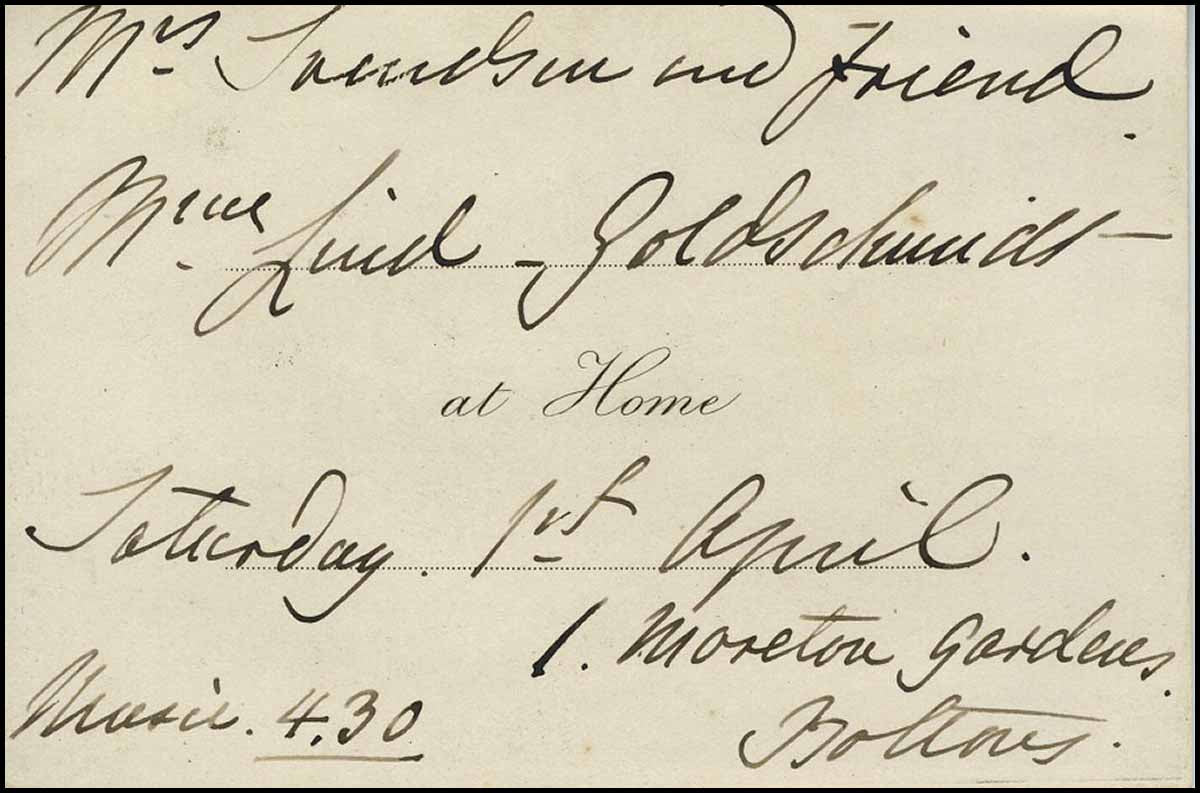 Mrs Svendsen and Friend.
Mme. Lind - Goldschmidt -
at Home
Saturday. 1st April.
1. Moreton Gardens.
Music. 4.30
Boltons.